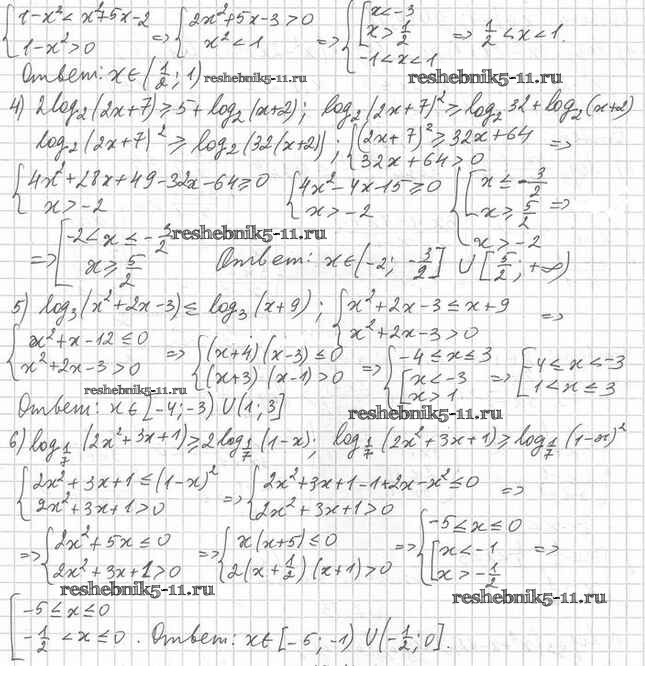 {1-x²<x²+5x-2 {2x²+5x-3>0 {[x<-3
{1-x²>0 => {x²<1 => {[x>1/2 => 1/2<x<1.
Ответ: x∈(1/2; 1) reshebnik5-11.ru -1<x<1 reshebnik5-11.ru
4) 2log₂(2x+7)≥5+log₂(x+2); log₂(2x+7)²≥log₂32+log₂(x+2)
log₂(2x+7)²≥log₂(32(x+2)); {(2x+7)²≥32x+64
{32x+64>0 =>
{4x²+28x+49-32x-64≥0 {4x²-4x-15≥0 {[x≤-3/2
{x>-2 {x>-2 {[x≥5/2 =>
{x>-2
=> [-2<x≤-3/2 reshebnik5-11.ru
[x≥5/2 Ответ: x∈(-2; -3/2] ∪ [5/2; +∞)
5) log₃(x²+2x-3)≤log₃(x+9); {x²+2x-3≤x+9
{x²+2x-3>0 =>
{x²+x-12≤0 => {(x+4)(x-3)≤0 => {-4≤x≤3 => [-4≤x<-3
{x²+2x-3>0 {(x+3)(x-1)>0 {[x<-3 [1<x≤3
reshebnik5-11.ru {[x>1
Ответ: x∈[-4;-3) ∪ (1; 3] reshebnik5-11.ru
6) log₁/₇(2x²+3x+1)≥2log₁/₇(1-x); log₁/₇(2x²+3x+1)≥log₁/₇(1-x)²
{2x²+3x+1≤(1-x)² => {2x²+3x+1-1+2x-x²≤0 =>
{2x²+3x+1>0 {2x²+3x+1>0
=> {2x²+5x≤0 => {x(x+5)≤0 => {-5≤x≤0
{2x²+3x+1>0 {2(x+1/2)(x+1)>0 {[x<-1 =>
{[x>-1/2
reshebnik5-11.ru reshebnik5-11.ru
[-5≤x≤0
[-1/2<x≤0. Ответ: x∈[-5; -1) ∪ (-1/2; 0].